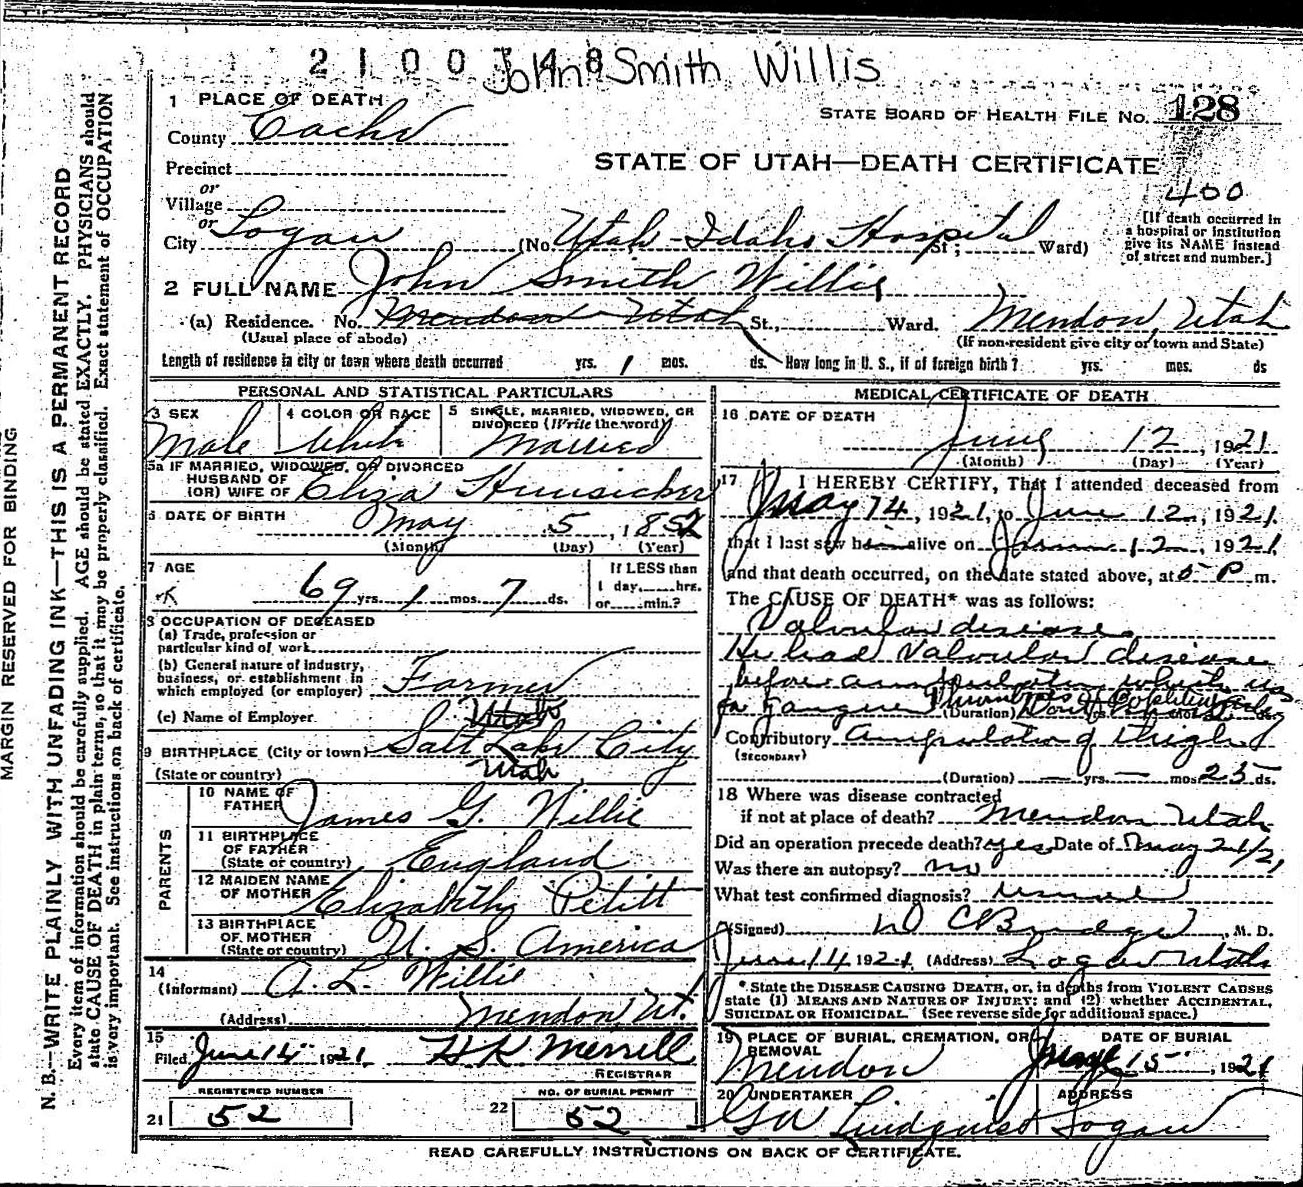 2100348 John Smith Willis
1 PLACE OF DEATH
County Cache
STATE BOARD OF HEALTH FILE No. 128
Precinct
STATE OF UTAH—DEATH CERTIFICATE
400
or
Village
or
City Logan (No. Utah-Idaho Hospital St; Ward)
[If death occurred in
a hospital or institution
give its NAME instead
of street and number.]
2 FULL NAME John Smith Willis
(a) Residence. No. Mendon Utah St., Ward. Mendon, Utah
(Usual place of abode) (If non-resident give city or town and State)
Length of residence in city or town where death occurred yrs. 1 mos. ds. How long in U. S., if of foreign birth? yrs. mos. ds
PERSONAL AND STATISTICAL PARTICULARS
3 SEX 4 COLOR OR RACE 5 SINGLE, MARRIED, WIDOWED, OR
DIVORCED (Write the word)
Male White Married
5a IF MARRIED, WIDOWED, OR DIVORCED
HUSBAND OF
(OR) WIFE OF Eliza Hunsicker
6 DATE OF BIRTH May 5, 1852
(Month) (Day) (Year)
7 AGE 69 yrs. 1 mos. 7 ds.
If LESS than
1 day, hrs.
or min.?
8 OCCUPATION OF DECEASED
(a) Trade, profession or
particular kind of work
(b) General nature of industry,
business, or establishment in
which employed (or employer) Farmer
(c) Name of Employer Utah
9 BIRTHPLACE (City or town) Salt Lake City
(State or country) Utah
PARENTS
10 NAME OF
FATHER James G. Willie
11 BIRTHPLACE
OF FATHER
(State or country) England
12 MAIDEN NAME
OF MOTHER Elizabeth Petitt
13 BIRTHPLACE
OF MOTHER
(State or country) U. S. America
14
(Informant) A. L. Willis
(Address) Mendon, Ut.
15
Filed June 14 1921 H K Merrill
REGISTRAR
REGISTERED NUMBER NO. OF BURIAL PERMIT
21 52 22 52
MEDICAL CERTIFICATE OF DEATH
16 DATE OF DEATH
June 12, 1921
(Month) (Day) (Year)
17 I HEREBY CERTIFY, That I attended deceased from
May 14, 1921, to June 12, 1921
that I last saw him alive on June 12, 1921
and that death occurred, on the date stated above, at 5 P m.
The CAUSE OF DEATH* was as follows:
Valvular disease
He had Valvular disease
before amputation which was
for Gangrene Thrombosis of Popliteal
(Duration) yrs. mos. ds.
Contributory Amputation of thigh
(SECONDARY)
(Duration) — yrs. — mos. 25 ds.
18 Where was disease contracted
if not at place of death? Mendon Utah
Did an operation precede death? yes Date of May 21/21
Was there an autopsy? no
What test confirmed diagnosis? usual
(Signed) D C Budge, M. D.
June 14 1921 (Address) Logan Utah
*State the DISEASE CAUSING DEATH, or, in deaths from VIOLENT CAUSES
state (1) MEANS AND NATURE OF INJURY; and (2) whether ACCIDENTAL,
SUICIDAL OR HOMICIDAL. (See reverse side for additional space.)
19 PLACE OF BURIAL, CREMATION, OR
REMOVAL DATE OF BURIAL
Mendon June 15, 1921
20 UNDERTAKER ADDRESS
GW Lindquist Logan
READ CAREFULLY INSTRUCTIONS ON BACK OF CERTIFICATE.
MARGIN RESERVED FOR BINDING
N. B.—WRITE PLAINLY WITH UNFADING INK—THIS IS A PERMANENT RECORD
Every item of information should be carefully supplied. AGE should be stated EXACTLY. PHYSICIANS should
state CAUSE OF DEATH in plain terms, so that it may be properly classified. Exact statement of OCCUPATION
is very important. See instructions on back of certificate.